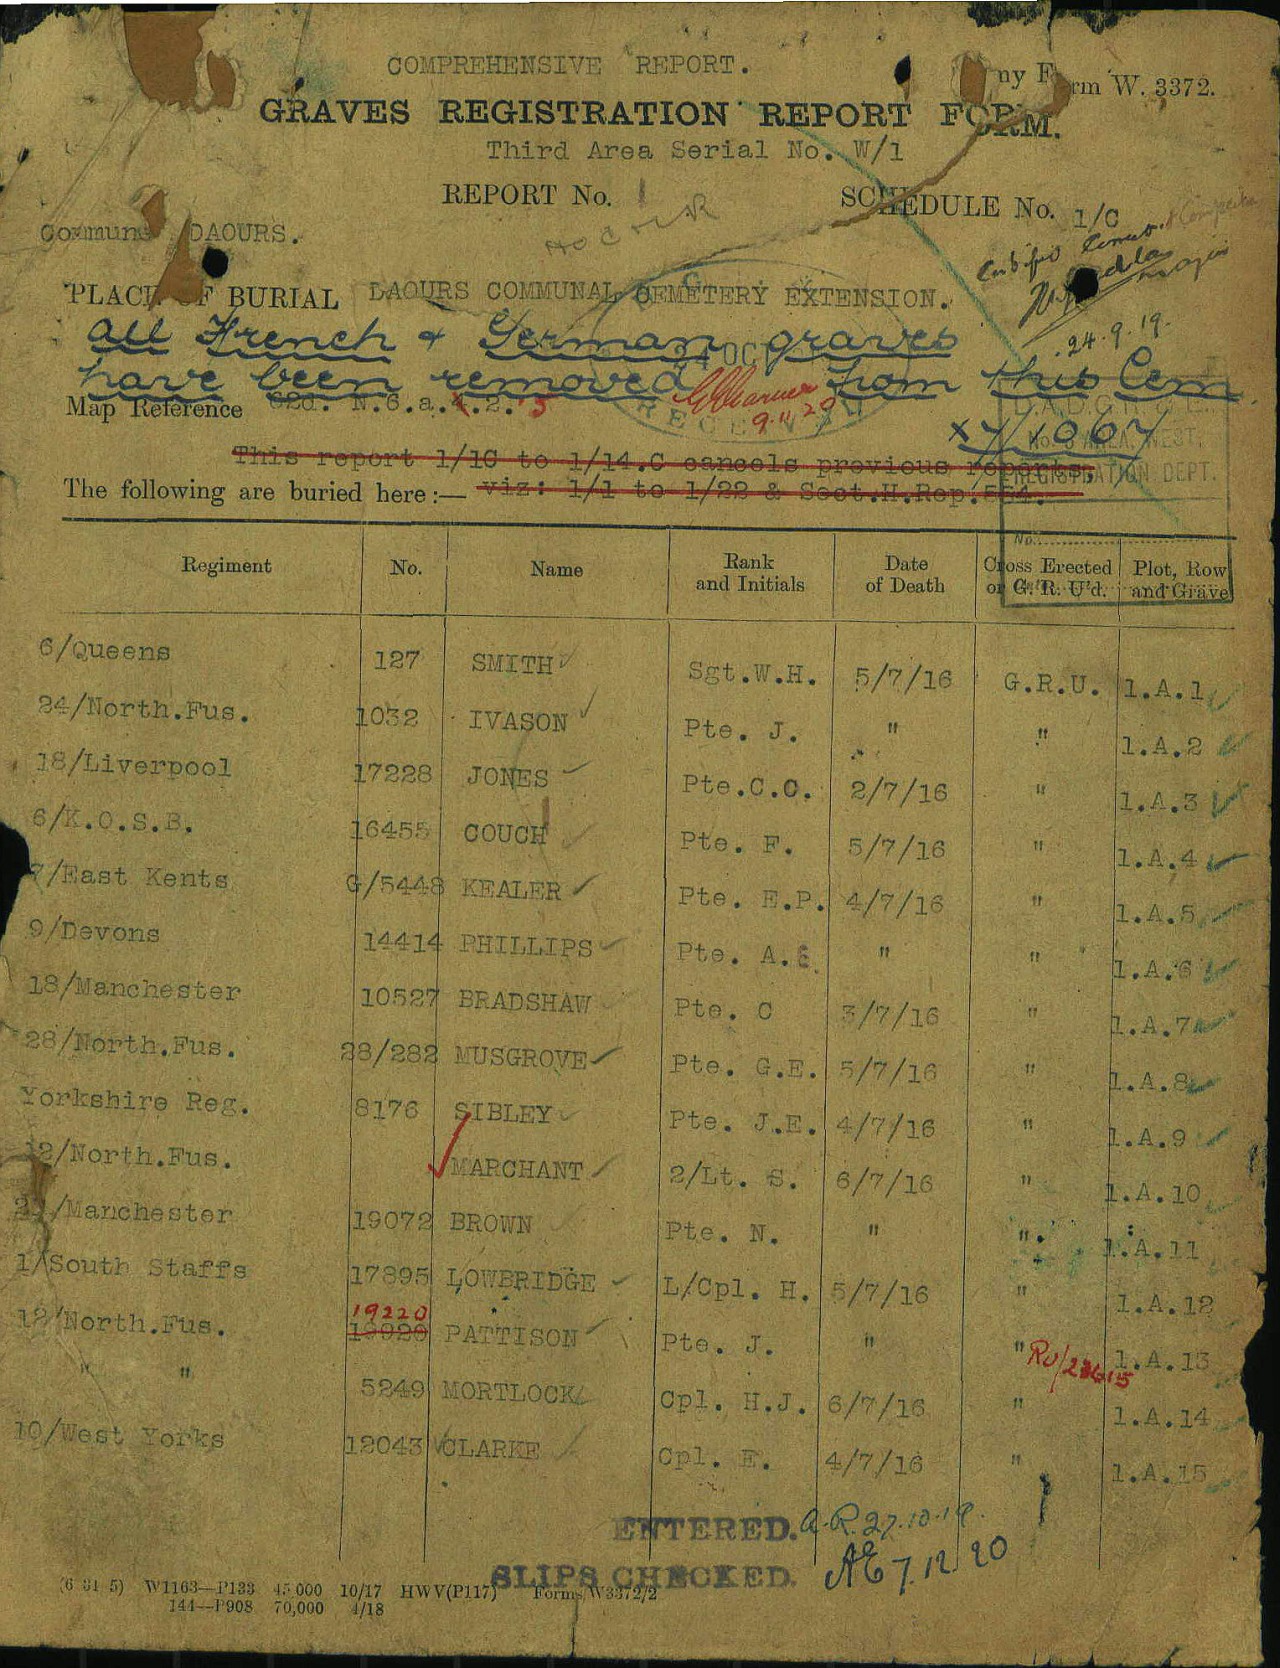 COMPREHENSIVE REPORT.
Form W. 3372.
GRAVES REGISTRATION REPORT FORM.
Third Area Serial No. W/1
REPORT No. 1
SCHEDULE No. 1/C
Commune DAOURS.
PLACE OF BURIAL DAOURS COMMUNAL CEMETERY EXTENSION.
24.9.19.
All French & German graves
have been removed from this Cem
Map Reference 62d. N.6.a. 2.
9.11.20
This report 1/1C to 1/14.C cancels previous reports.
The following are buried here:— viz: 1/1 to 1/22 & Scot.H.Rep.554.
REGISTRATION DEPT.
Regiment No. Name Rank and Initials Date of Death Cross Erected or G. R. U'd. Plot, Row and Grave
6/Queens 127 SMITH Sgt.W.H. 5/7/16 G.R.U. 1.A.1
24/North.Fus. 1032 IVASON Pte. J. " " 1.A.2
18/Liverpool 17228 JONES Pte.C.C. 2/7/16 " 1.A.3
6/K.O.S.B. 16455 COUCH Pte. F. 5/7/16 " 1.A.4
7/East Kents G/5448 KEALER Pte. E.P. 4/7/16 " 1.A.5
9/Devons 14414 PHILLIPS Pte. A. " " 1.A.6
18/Manchester 10527 BRADSHAW Pte. C 3/7/16 " 1.A.7
28/North.Fus. 28/282 MUSGROVE Pte. G.E. 5/7/16 " 1.A.8
Yorkshire Reg. 8176 SIBLEY Pte. J.E. 4/7/16 " 1.A.9
12/North.Fus. MARCHANT 2/Lt. S. 6/7/16 " 1.A.10
/Manchester 19072 BROWN Pte. N. " " 1.A.11
1/South Staffs 17895 LOWBRIDGE L/Cpl. H. 5/7/16 " 1.A.12
19220
12/North.Fus. PATTISON Pte. J. " " 1.A.13
" " 5249 MORTLOCK Cpl. H.J. 6/7/16 " 1.A.14
10/West Yorks 12043 CLARKE Cpl. E. 4/7/16 " 1.A.15
ENTERED. A.R. 27.10.19.
SLIPS CHECKED. AE 7.12.20
(6 31 5) W1163—P133 45,000 10/17 HWV(P117) Forms/W3372/2
144—P908 70,000 4/18